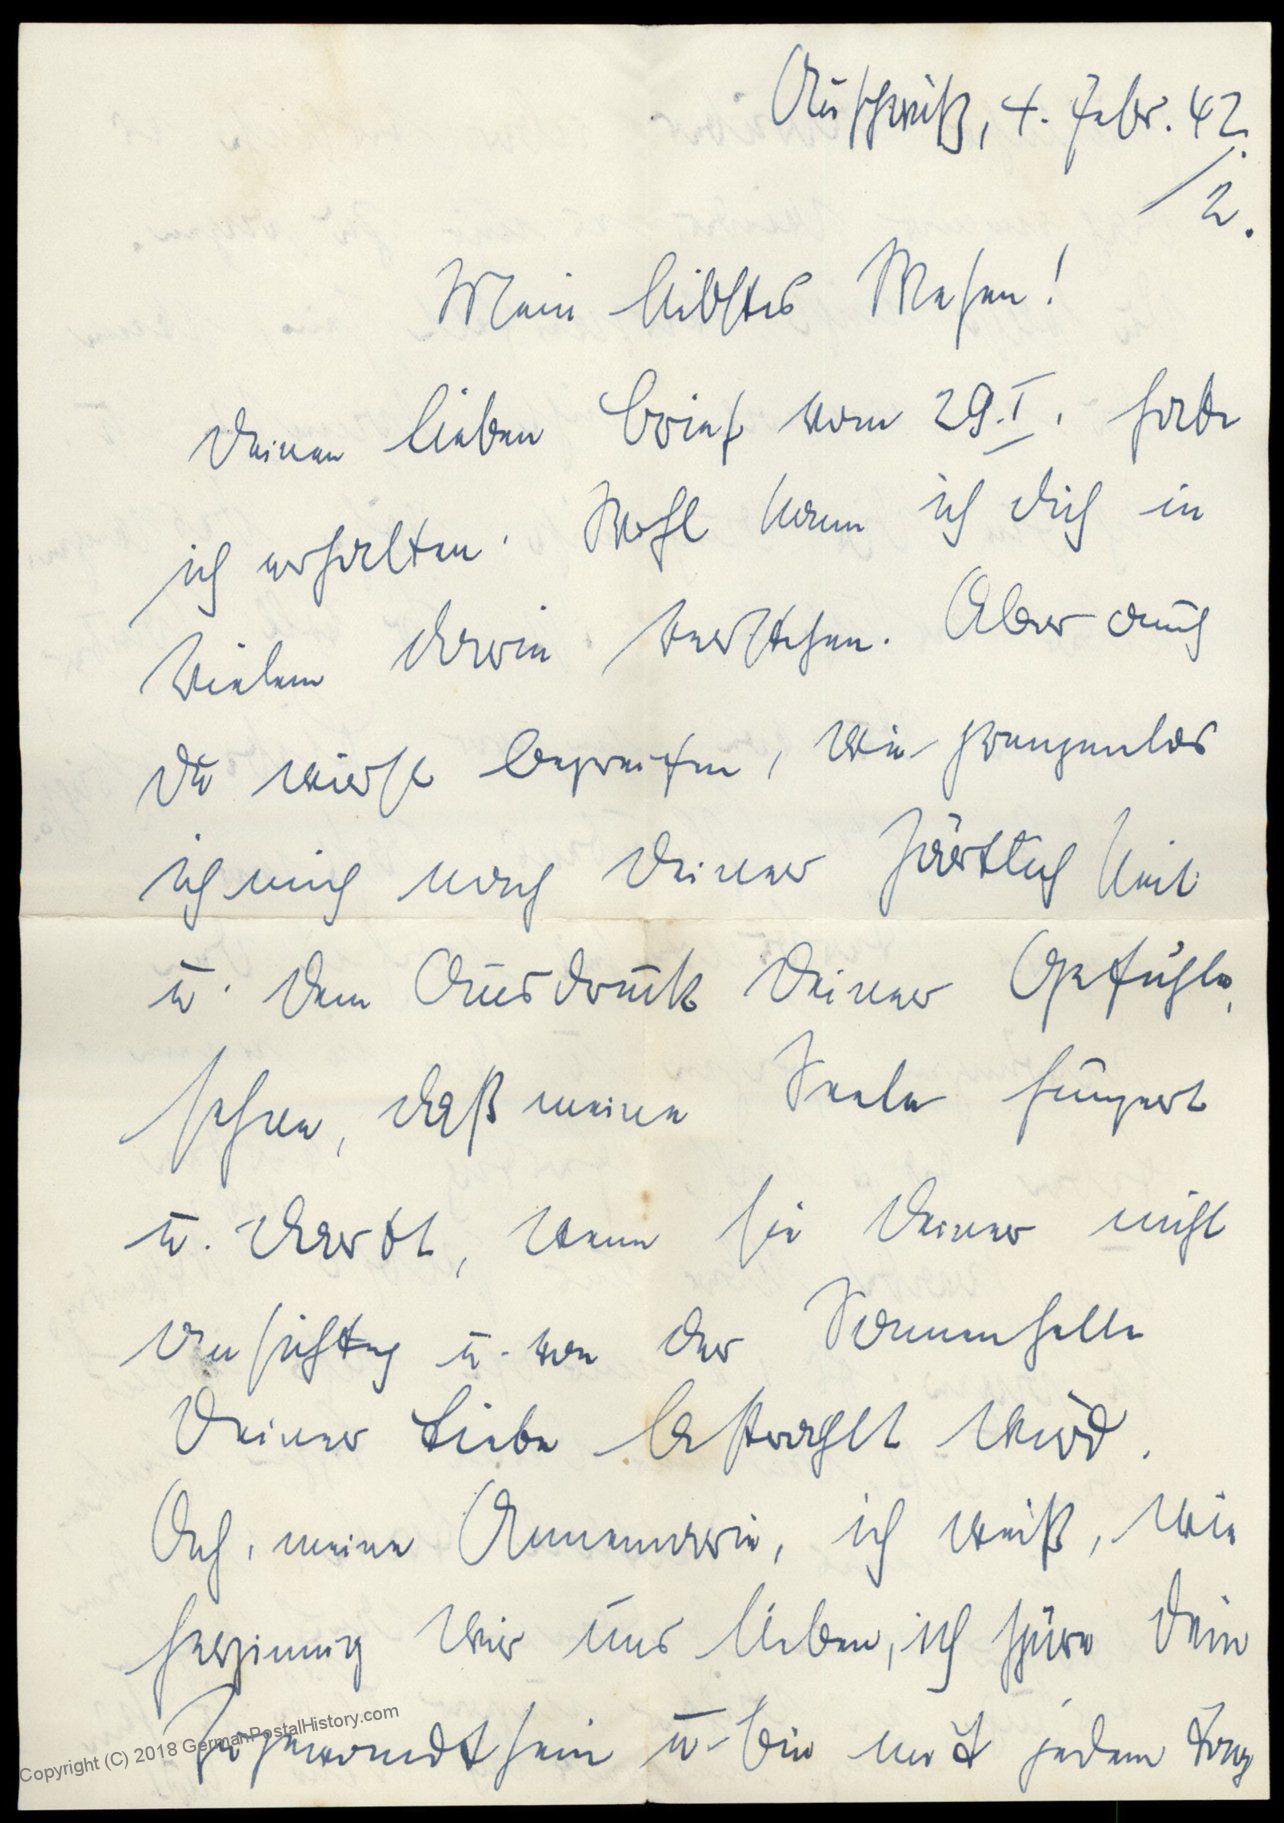 Auschwitz, 4. Febr. 42.
/2.
Mein liebstes Wesen!
Deinen lieben Brief vom 29.I. habe
ich erhalten. Wohl kann ich Dich in
Vielem darin verstehen. Aber auch
Du wirst begreifen, wie grenzenlos
ich mich nach Deiner Zärtlichkeit
u. dem Ausdruck Deiner Gefühle
sehne, daß meine Seele hungert
u. darbt, wenn sie Deiner nicht
ansichtig u. von der Sonnenhelle
Deiner Liebe bestrahlt wird.
Ach, meine Annemarie, ich weiß, wie
herzinnig wir uns lieben, ich spüre Dein
Zugewandtsein u. bin mit jedem Tag
Copyright (C) 2018 GermanPostalHistory.com